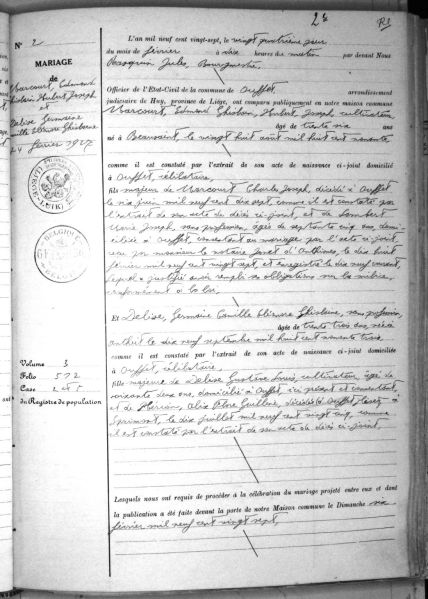 2
R3
N° 2
MARIAGE
de
Marcourt, Edmond
Ghislain Hubert Joseph
et
Delise Germaine
Camille Eléonore Ghislaine
24 février 1927
L'an mil neuf cent vingt-sept, le vingt quatrième jour
du mois de février à dix heures du matin par devant Nous
Jules, Bourgmestre,
Officier de l'Etat-Civil de la commune de Ouffet arrondissement
judiciaire de Huy, province de Liége, ont comparu publiquement en notre maison commune
Marcourt, Edmond Ghislain, Hubert Joseph, cultivateur
âgé de trente six ans
né à Beausaint, le vingt huit août mil huit cent nonante,
comme il est constaté par l'extrait de son acte de naissance ci-joint domicilié
à Ouffet, célibataire,
fils majeur de Marcourt Charles Joseph, décédé à Ouffet
le six juin mil neuf cent dix sept, comme il est constaté par
l'extrait de son acte de décès ci-joint, et de Lambert
Marie Joseph, sans profession, âgée de septante cinq ans, domi-
ciliée à Ouffet, consentant au mariage par l'acte ci-joint,
reçu par monsieur le notaire Jonet d'Anthisnes, le dix huit
février mil neuf cent vingt sept, et enregistré le dix neuf courant,
lequel a justifié avoir rempli ses obligations sur la milice,
conformément à la loi,
Et Delise, Germaine Camille Eléonore Ghislaine, sans profession,
âgée de trente trois ans, née à
le dix neuf septembre mil huit cent nonante trois
comme il est constaté par l'extrait de son acte de naissance ci-joint domiciliée
à Ouffet, célibataire,
fille majeure de Delise Gustave Louis, cultivateur, âgé de
soixante deux ans, domicilié à Ouffet, ici présent et consentant,
et de Flore décédée à
Sprimont, le dix juillet mil neuf cent vingt cinq, comme
il est constaté par l'extrait de son acte de décès ci-joint,
Volume 3
Folio 592
Case 2 et 5
du Registre de population
Lesquels nous ont requis de procéder à la célébration du mariage projeté entre eux et dont
la publication a été faite devant la porte de notre Maison commune le Dimanche six
février mil neuf cent vingt sept,